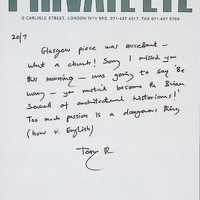 PRIVATE EYE
6 CARLISLE STREET, LONDON W1V 5RG. 071-437 4017 FAX 071-437 0705
20/7
Glasgow piece was excellent –
What a chump! Sorry I missed you
this morning – was going to say 'Be
wary – you mustn't become the Brian
Sewell of architectural historians!'
Too much passion is a dangerous thing
(how v. English)
Tony R